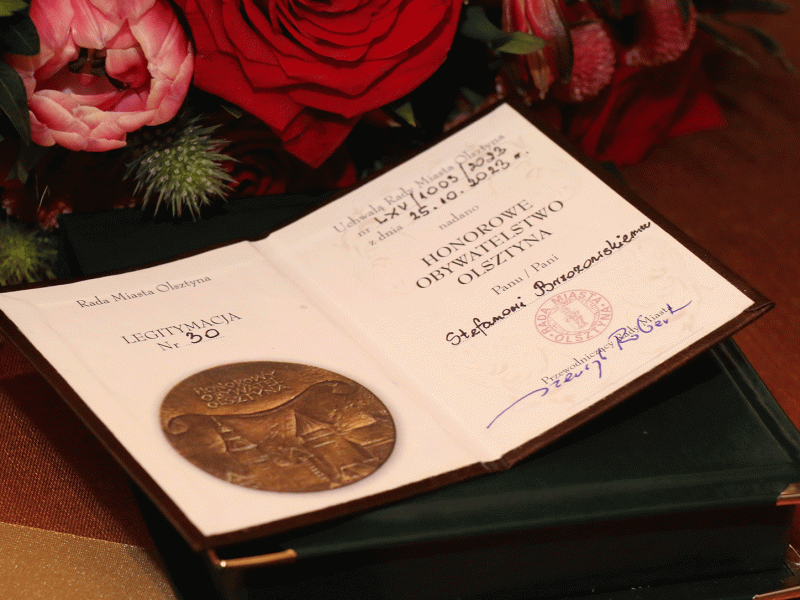 Rada Miasta Olsztyna
LEGITYMACJA
Nr 30
HONOROWY
OLSZTYNA
Uchwałą Rady Miasta Olsztyna
nr LXV/1003/2023
z dnia 25.10.2023 r.
nadano
HONOROWE
OBYWATELSTWO
OLSZTYNA
Panu / Pani
Stefanowi Brzozowskiemu
RADA MIASTA
OLSZTYNA
Przewodniczący Rady Miasta